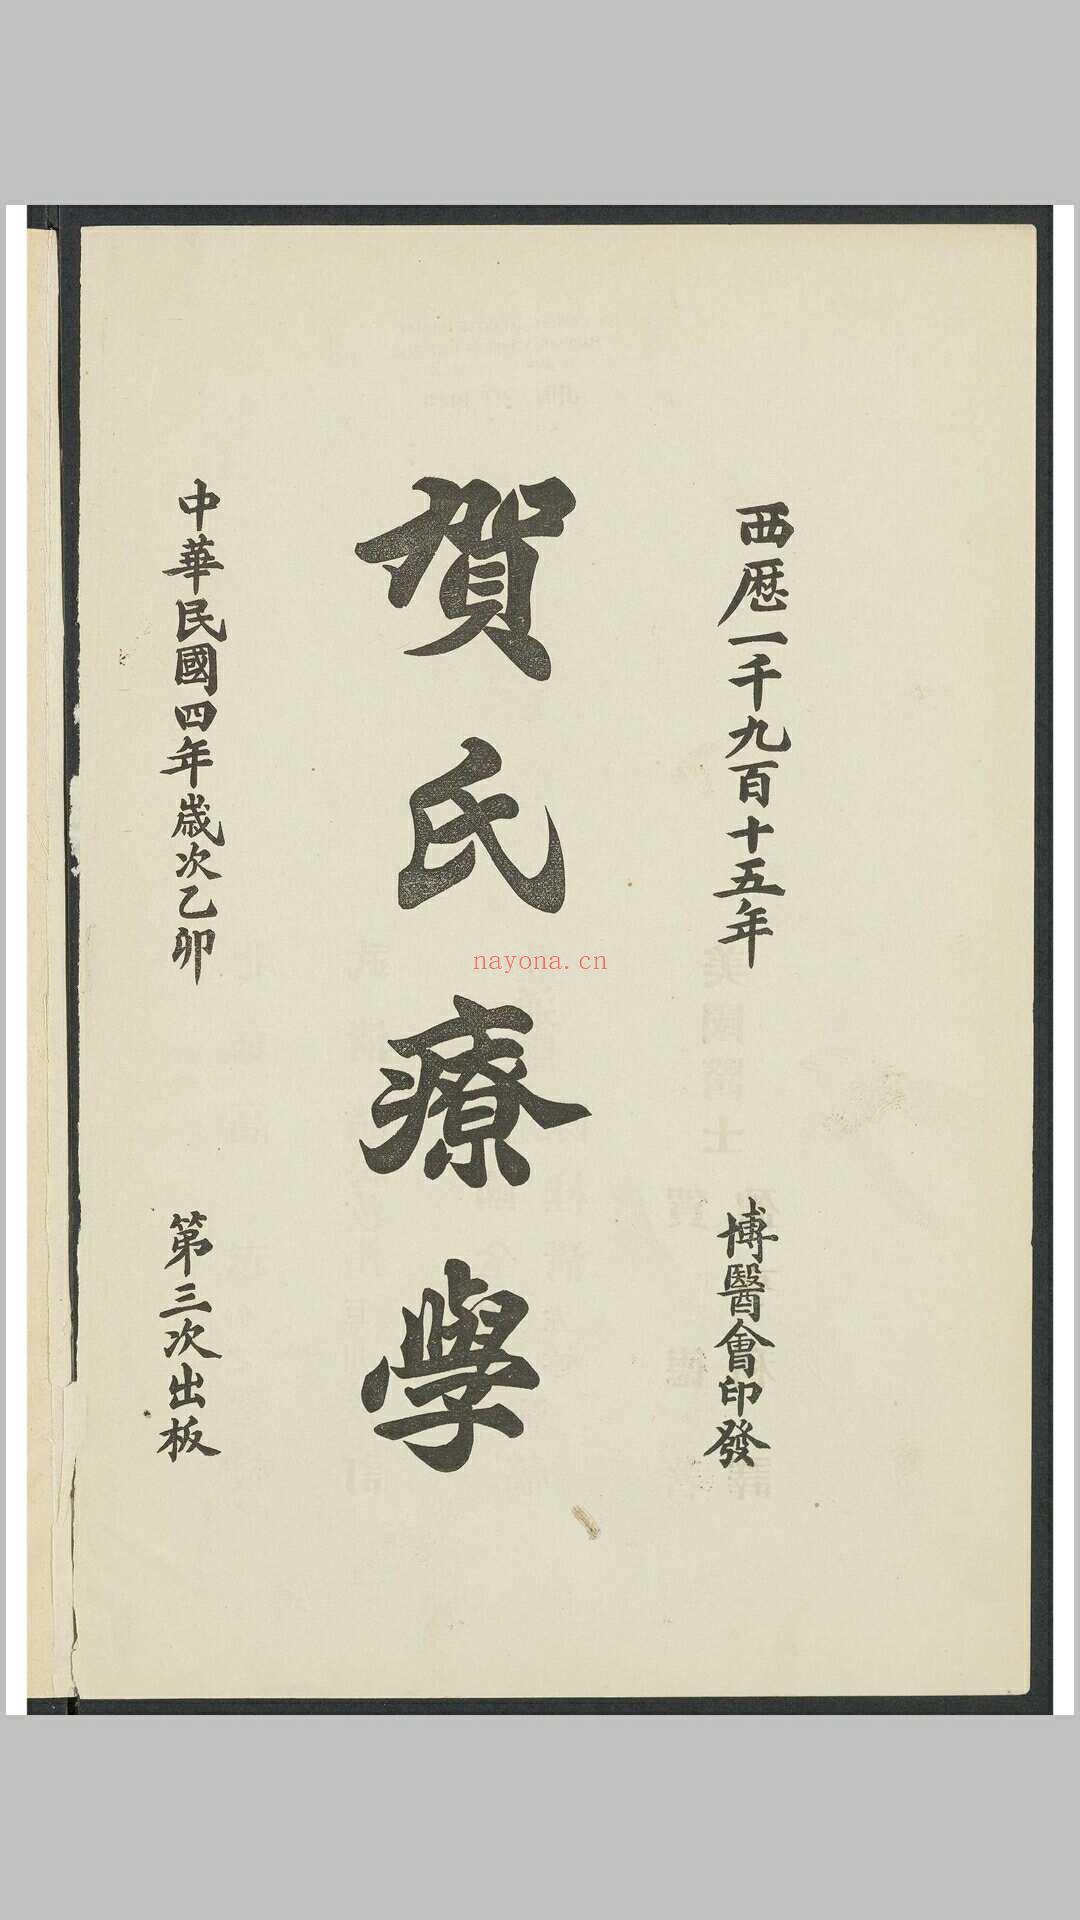 西厯一千九百十五年
博醫會印發
賀氏療學
中華民國四年歲次乙卯
第三次出板
nayona.cn